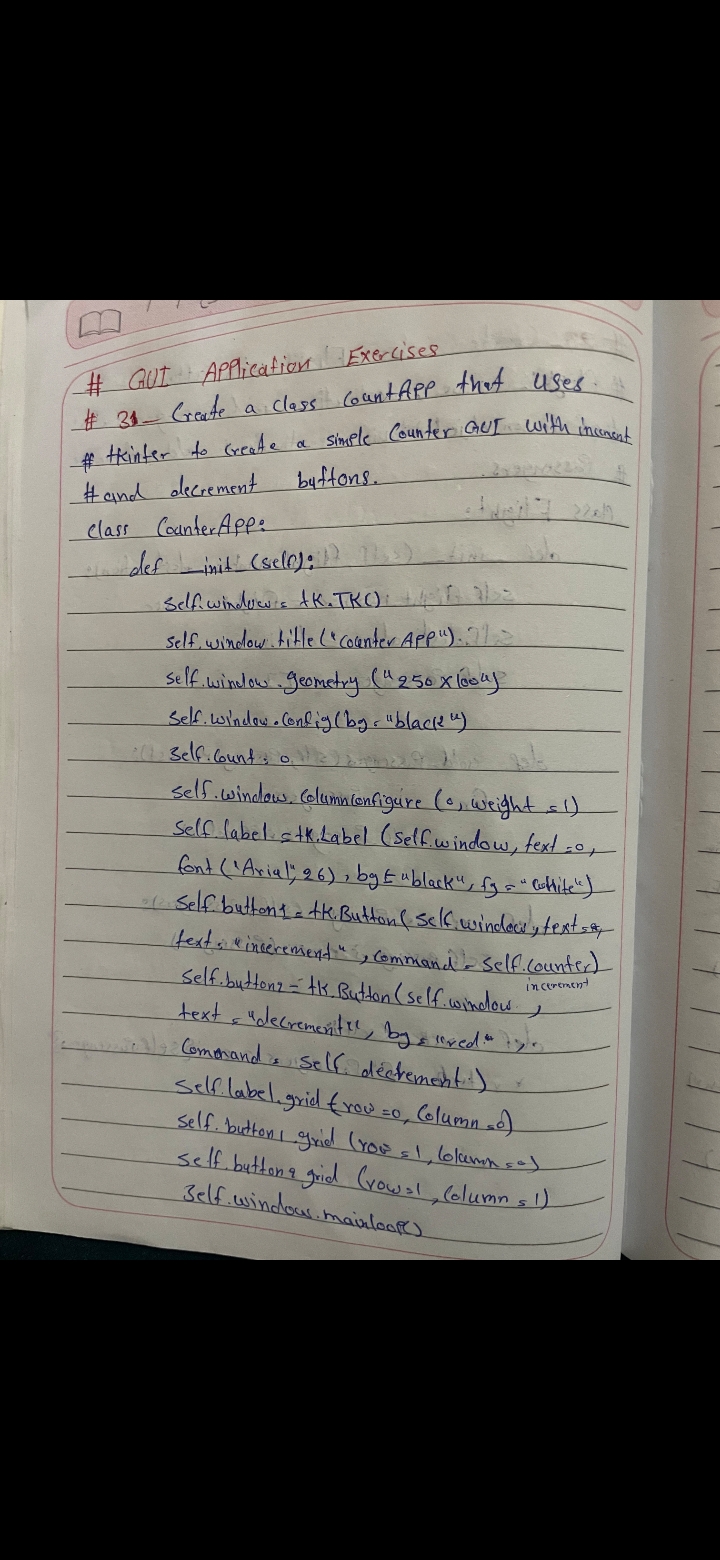 # GUI Application Exercises
# 31- Create a class CountApp that uses.
# tkinter to create a simple Counter GUI with increment
# and decrement buttons.
class CounterApp:
def __init__(self):
self.window = tk.TK()
self.window.title("Counter App").
self.window.geometry("250x100")
self.window.config(bg="black")
self.count = 0
self.window.columnconfigure(0, weight=1)
self.label = tk.Label(self.window, text=0,
font("Arial", 26), bg="black", fg="white")
self.button1 = tk.Button(self.window, text=
text="incerement", command=self.counter)
incerement
self.button2 = tk.Button(self.window,
text="decrement", bg="red",
command=self.decrement)
self.label.grid(row=0, column=0)
self.button1.grid(row=1, column=0)
self.button2 grid (row=1, column=1)
self.window.mainloop()